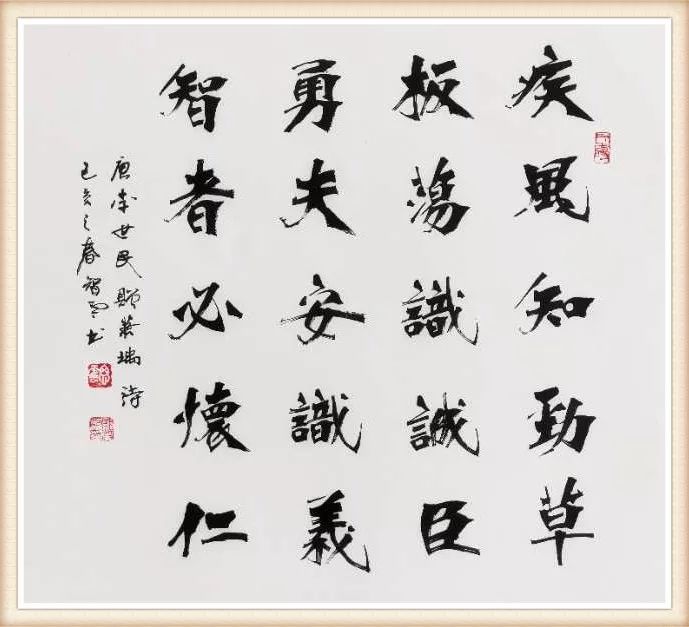 疾風知勁草
板蕩識誠臣
勇夫安識義
智者必懷仁
唐李世民賜蕭瑀詩
己亥之春智